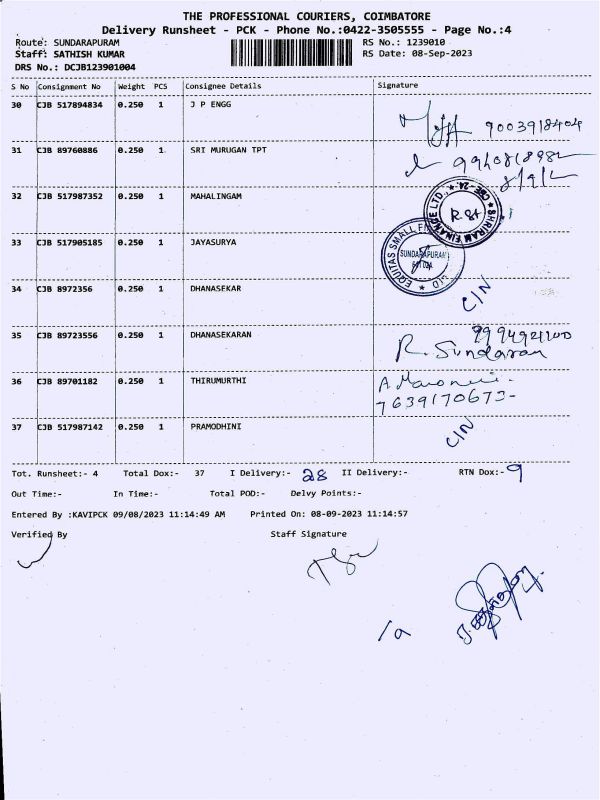 THE PROFESSIONAL COURIERS, COIMBATORE
Delivery Runsheet - PCK - Phone No.:0422-3505555 - Page No.:4
Route: SUNDARAPURAM
RS No.: 1239010
Staff: SATHISH KUMAR
RS Date: 08-Sep-2023
DRS No.: DCJB123901004
S No Consignment No Weight PCS Consignee Details Signature
30 CJB 517894834 0.250 1 J P ENGG
9003918404
31 CJB 89760886 0.250 1 SRI MURUGAN TPT
32 CJB 517987352 0.250 1 MAHALINGAM
SHRIRAM FINANCE LTD., * 24, CBE *
33 CJB 517905185 0.250 1 JAYASURYA
EQUITAS SMALL
SUNDARAPURAM
34 CJB 8972356 0.250 1 DHANASEKAR
CIN
35 CJB 89723556 0.250 1 DHANASEKARAN
R. Sundaran
36 CJB 89701182 0.250 1 THIRUMURTHI
7639170673-
37 CJB 517987142 0.250 1 PRAMODHINI
CIN
Tot. Runsheet:- 4 Total Dox:- 37 I Delivery:- 28 II Delivery:- RTN Dox:- 9
Out Time:- In Time:- Total POD:- Delvy Points:-
Entered By :KAVIPCK 09/08/2023 11:14:49 AM Printed On: 08-09-2023 11:14:57
Verified By Staff Signature